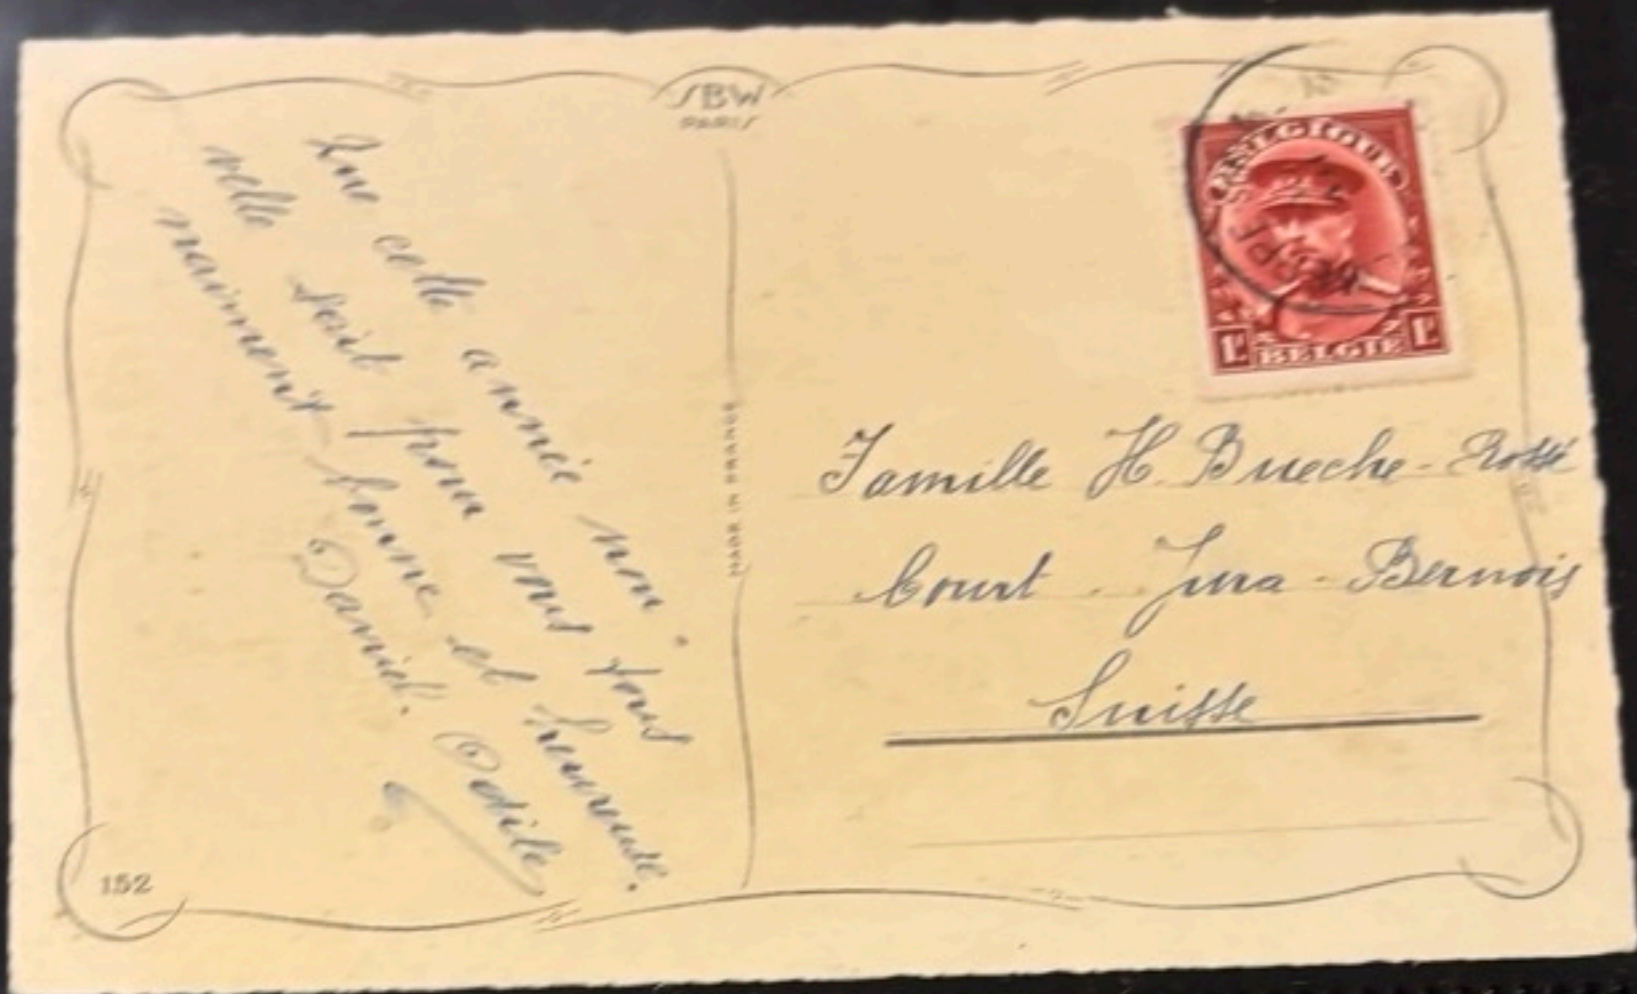 SBW
PARIS
Que cette année nou-
velle soit pour vous tous
vraiment bonne et heureuse.
Daniel. Odile
MADE IN FRANCE
152
BELGIQUE
1F 1F
BELGIE
Famille H. Bueche-Rossé
Court. Jura-Bernois
Suisse